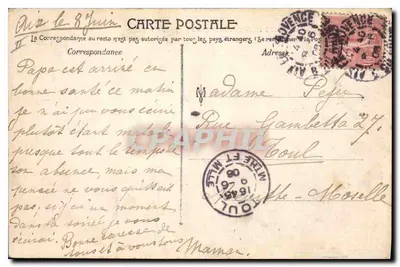 Aix le 8 Juin
CARTE POSTALE
La Correspondance au recto n'est pas autorisée par tous les pays étrangers.
Correspondance
Adresse
Papa est arrivé en
bonne santé ce matin
je n'ai pu vous écrire
plutôt étant
presque tout le temps
son absence, mais ma
pensée ne vous quittait
pas, si j'ai un moment
dans la soirée je vous
écrirai. Bonne caresse de
tous et à vous tous
Maman
Madame
Rue Gambetta 27
Toul
Mthe-Moselle
AIX EN PROVENCE
TOUL
MTHE ET MLLE
16 45